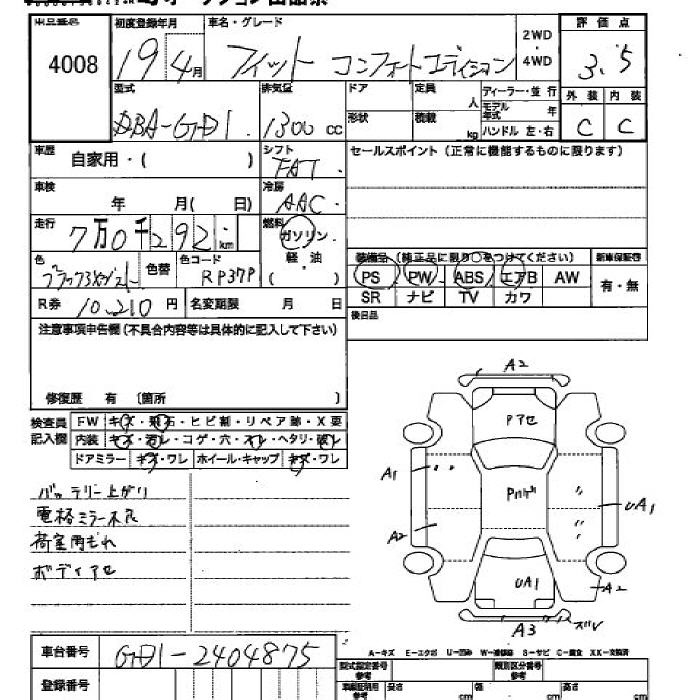 4008
初度登録年月
車名・グレード
評価点
19年4月
フィット コンフォートエディション
2WD
・
4WD
3.5
型式
排気量
ドア
定員
人
ディーラー・並行
外装
内装
DBA-GD1
1300cc
形状
積載
kg
モデル年式
年
ハンドル 左・右
C
C
車歴
自家用・( )
シフト
FAT
セールスポイント(正常に機能するものに限ります)
車検
年 月( 日)
冷房
AAC
走行
7万0千292km
燃料
ガソリン
軽・油
( )
色
色替
色コード
RP37P
装備品(純正品に限り○をつけてください)
新車保証書
PS
PW
ABS
エアB
AW
有・無
SR
ナビ
TV
カワ
R券
10,210円
名変期限
月 日
後日品
注意事項申告欄(不具合内容等は具体的に記入して下さい)
修復歴 有 〔箇所 〕
検査員
記入欄
FW
キズ・飛石・ヒビ割・リペア跡・X要
内装
キズ・汚レ・コゲ・穴・スレ・ヘタリ・破レ
ドアミラー
キズ・ワレ
ホイール・キャップ
キズ・ワレ
バッテリー上がり
電格ミラー不良
荷室内もれ
ボディアセ
A2
Pアセ
A1
Pハゲ
UA1
A2
UA1
A2
A3
ズレ
車台番号
GD1-2404875
A-キズ E-エクボ U-凹み W-補修跡 S-サビ C-腐食 XX-交換済
登録番号
型式指定番号
参考
類別区分番号
参考
長さ
cm
幅
cm
高さ
cm